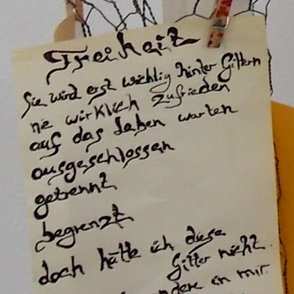 Freiheit
Sie wird erst wichtig hinter Gittern
nie wirklich zufrieden
auf das Leben warten
ausgeschlossen
getrennt
begrenzt
doch hätte ich diese
Gitter nicht
andere in mir